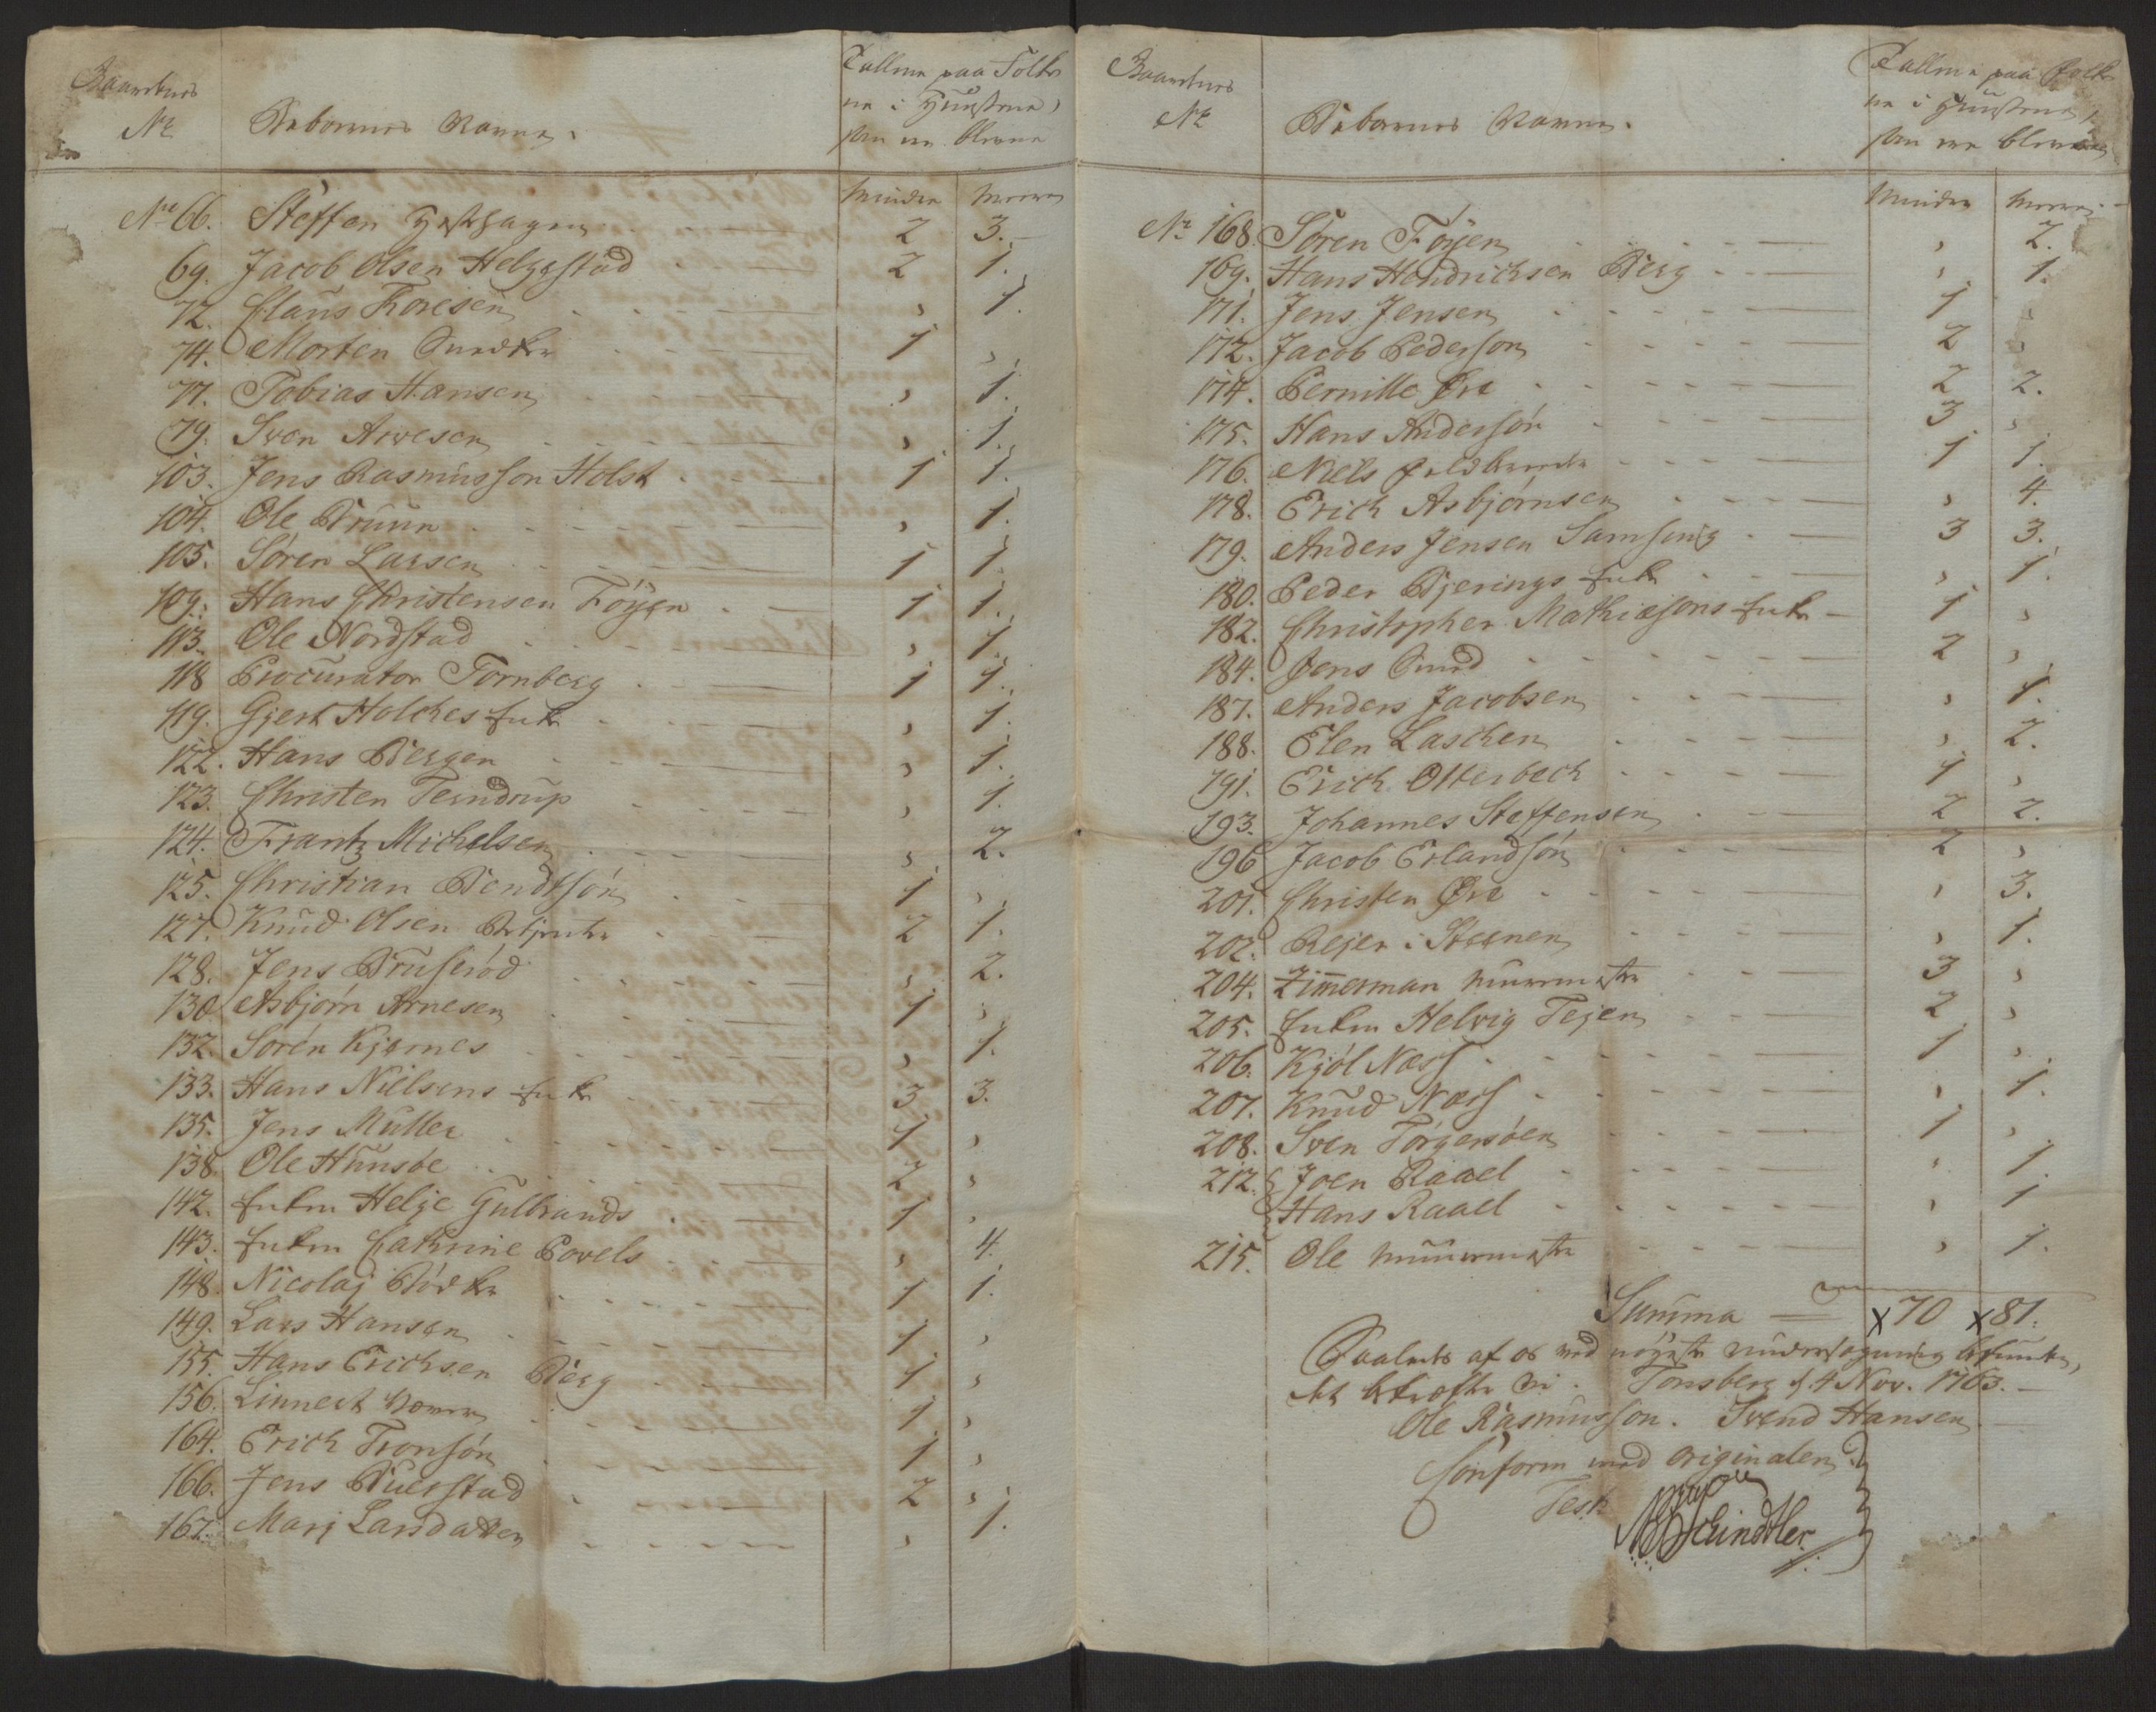 Gaardens
No
Beboernes Navne.
Tallene paa Folke
ne i Huusene,
som ere blevne
Mindre
Meere
No 66. Steffen Hestehagen 2 3.
69. Jacob Olsen Helgestad 2 1.
72. Claus Thoresen " 1.
74. Morten Snedker 1 "
77. Tobias Hansen " 1.
79. Sven Arvesen " 1.
103. Jens Rasmusson Holst 1 1.
104. Ole Bruun " 1.
105. Søren Larsen 1 1.
109. Hans Christensen Föyen 1 1.
113. Ole Nordstad " 1.
118 Procurator Tornberg 1 1.
119. Gjert Holches Enke " 1.
122. Hans Bergen " 1.
123. Christen Terndrup " 1.
124. Frantz Michelsen " 2.
125. Christian Bendtsön 1 "
127. Knud Olsen Betjente 2 1.
128. Jens Bruseröd " 2.
130 Asbjørn Arnesen 1 "
132. Sören Kjernes " 1.
133. Hans Nielsens Enke 3 3.
135. Jens Müller 1 "
138 Ole Huusbe 2 "
142. Enken Helje Gulbrands 1 "
143. Enken Cathrine Povels " 4.
148 Nicolaj Bödker 1 1.
149. Lars Hansen 1 "
155. Hans Erichsen Berg 1 "
156. Linnert 1 "
164. Erich Tronsön 1 "
166. Jens Buerstad 2 "
167. Marj Larsdatter " 1.
Gaardens
No
Beboernes Navne.
Tallene paa Folke
ne i Huusene,
som ere blevne
Mindre
Meere
No 168. Sören Föyen " 2.
169. Hans Hendrichsen Berg " 1.
171. Jens Jensen 1 "
172. Jacob Pederson 2 "
174. Pernille Öre 2 2.
175. Hans Andersön 3 "
176. Niels Feldbereder 1 1.
178. Erich Asbjörnsen " 4.
179. Anders Jensen Samsing 3 3.
180. Peder Bjerings Enke " 1.
182. Christopher Mathiesons Enke 1 "
184. Jens Smed 2 "
187. Anders Jacobsen " 1.
188. Elen Laschen " 2.
191. Erich Otterbech 1 "
193. Johannes Steffensen 2 2.
196 Jacob Erlandsön 2 "
201. Christen Öre " 3.
202. Rejer i Steenen " 1.
204. Zimmerman Muurmester 3 "
205. Enken Helvig Tejen 2 "
206. Kjöl Næss 1 "
207. Knud Næss " 1.
208. Sven Torgersöen 1 "
212. Joen Raael " 1.
Hans Raael " 1
215. Ole Muurmester " 1.
Summa x 70 x 81.
Saaledes af os ved nöyeste Undersögning befundet,
det bekræfter vi. Tonsberg d. 4 Nov. 1763.
Ole Rasmusson. Svend Hansen.
Conform med Originalen
Test.
Schindtler.